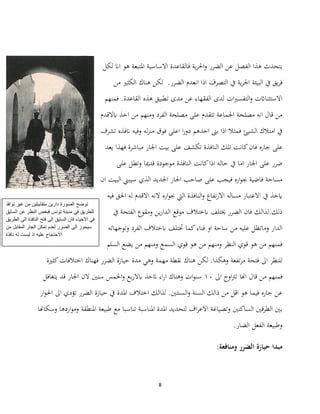 يتحدث هذا الفصل عن الضرر والحرية فالقاعدة الاساسية المتبعة هو انا لكل
فريق في البيئة الحرية في التصرف اذا انعدم الضرر. لكن هناك الكثير من
الاستثناءات والتفسيرات لدى الفقهاء عن مدى تطبيق هذه القاعدة. فمنهم
من قال انه مصلحة الجماعة تتقدم على مصلحة الفرد ومنهم من اخذ بالاقدم
في امتلاك الشيئ فمثلا اذا بنى احدهم دورا اعلى فوق منزله وفيه نافذه تشرف
على جاره فان كانت تلك النافذة تكشف على بيت الجار مباشرة فهذا يعد
ضرر على الجار اما في حاله اذا كانت النافذة موجودة قديما وتطل على
مساحة فاضية بجواره فيجب على صاحب الجار الجديد الذي سيبني البيت ان
ياخذ في الاعتبار مساله الارتفاع والنافذة التي بجواره لانه الاقدم له الحق فيه
ذلك.لذالك فان الضرر يختلف باختلاف موقع الدارين وموقع الفتحة في
الدار وماتطل عليه من ساحة او فناء كما تختلف باختلاف الفرد وتوجهاته
فمنهم من هو قوي النظر ومنهم من هو قوي السمع ومنهم من يضع السلم
للنظر الى فتحة مرتفعة وهكذا. لكن هناك نقطة مهمة وهي مدة حيازة الضرر فهناك اختلافات كثيرة
فمنهم من قال انها تتراوح الى ١٠ سنوات وهناك اراء تاخذ بالاربع والخمس سنين لان الجار قد يتغافل
عن جاره فيما هو اقل من ذالك السنة والسنتين. لذالك اختلاف المدة في حيازة الضرر تؤدي الى الحوار
بين الطرفين الساكنين وتصياغة الاعراف لتحديد المدة المناسبة تناسبا مع طبيعة المنطقة ومواردها وسكانها
وطبيعة الفعل الضار.
مبدا حيازة الضرر ومنافعة:
توضح الصورة دارين متقابلتين من غير نوافذ
للطريق في مدينة تونس فبغض النظر عن السابق
في الاحياء فان السابق الى فتح النافذة الى الطريق
سيحوز الى الضرر لعدم تمكن الجار المقابل من
الاحتجاج عليه اذ ليست له نافذة
8